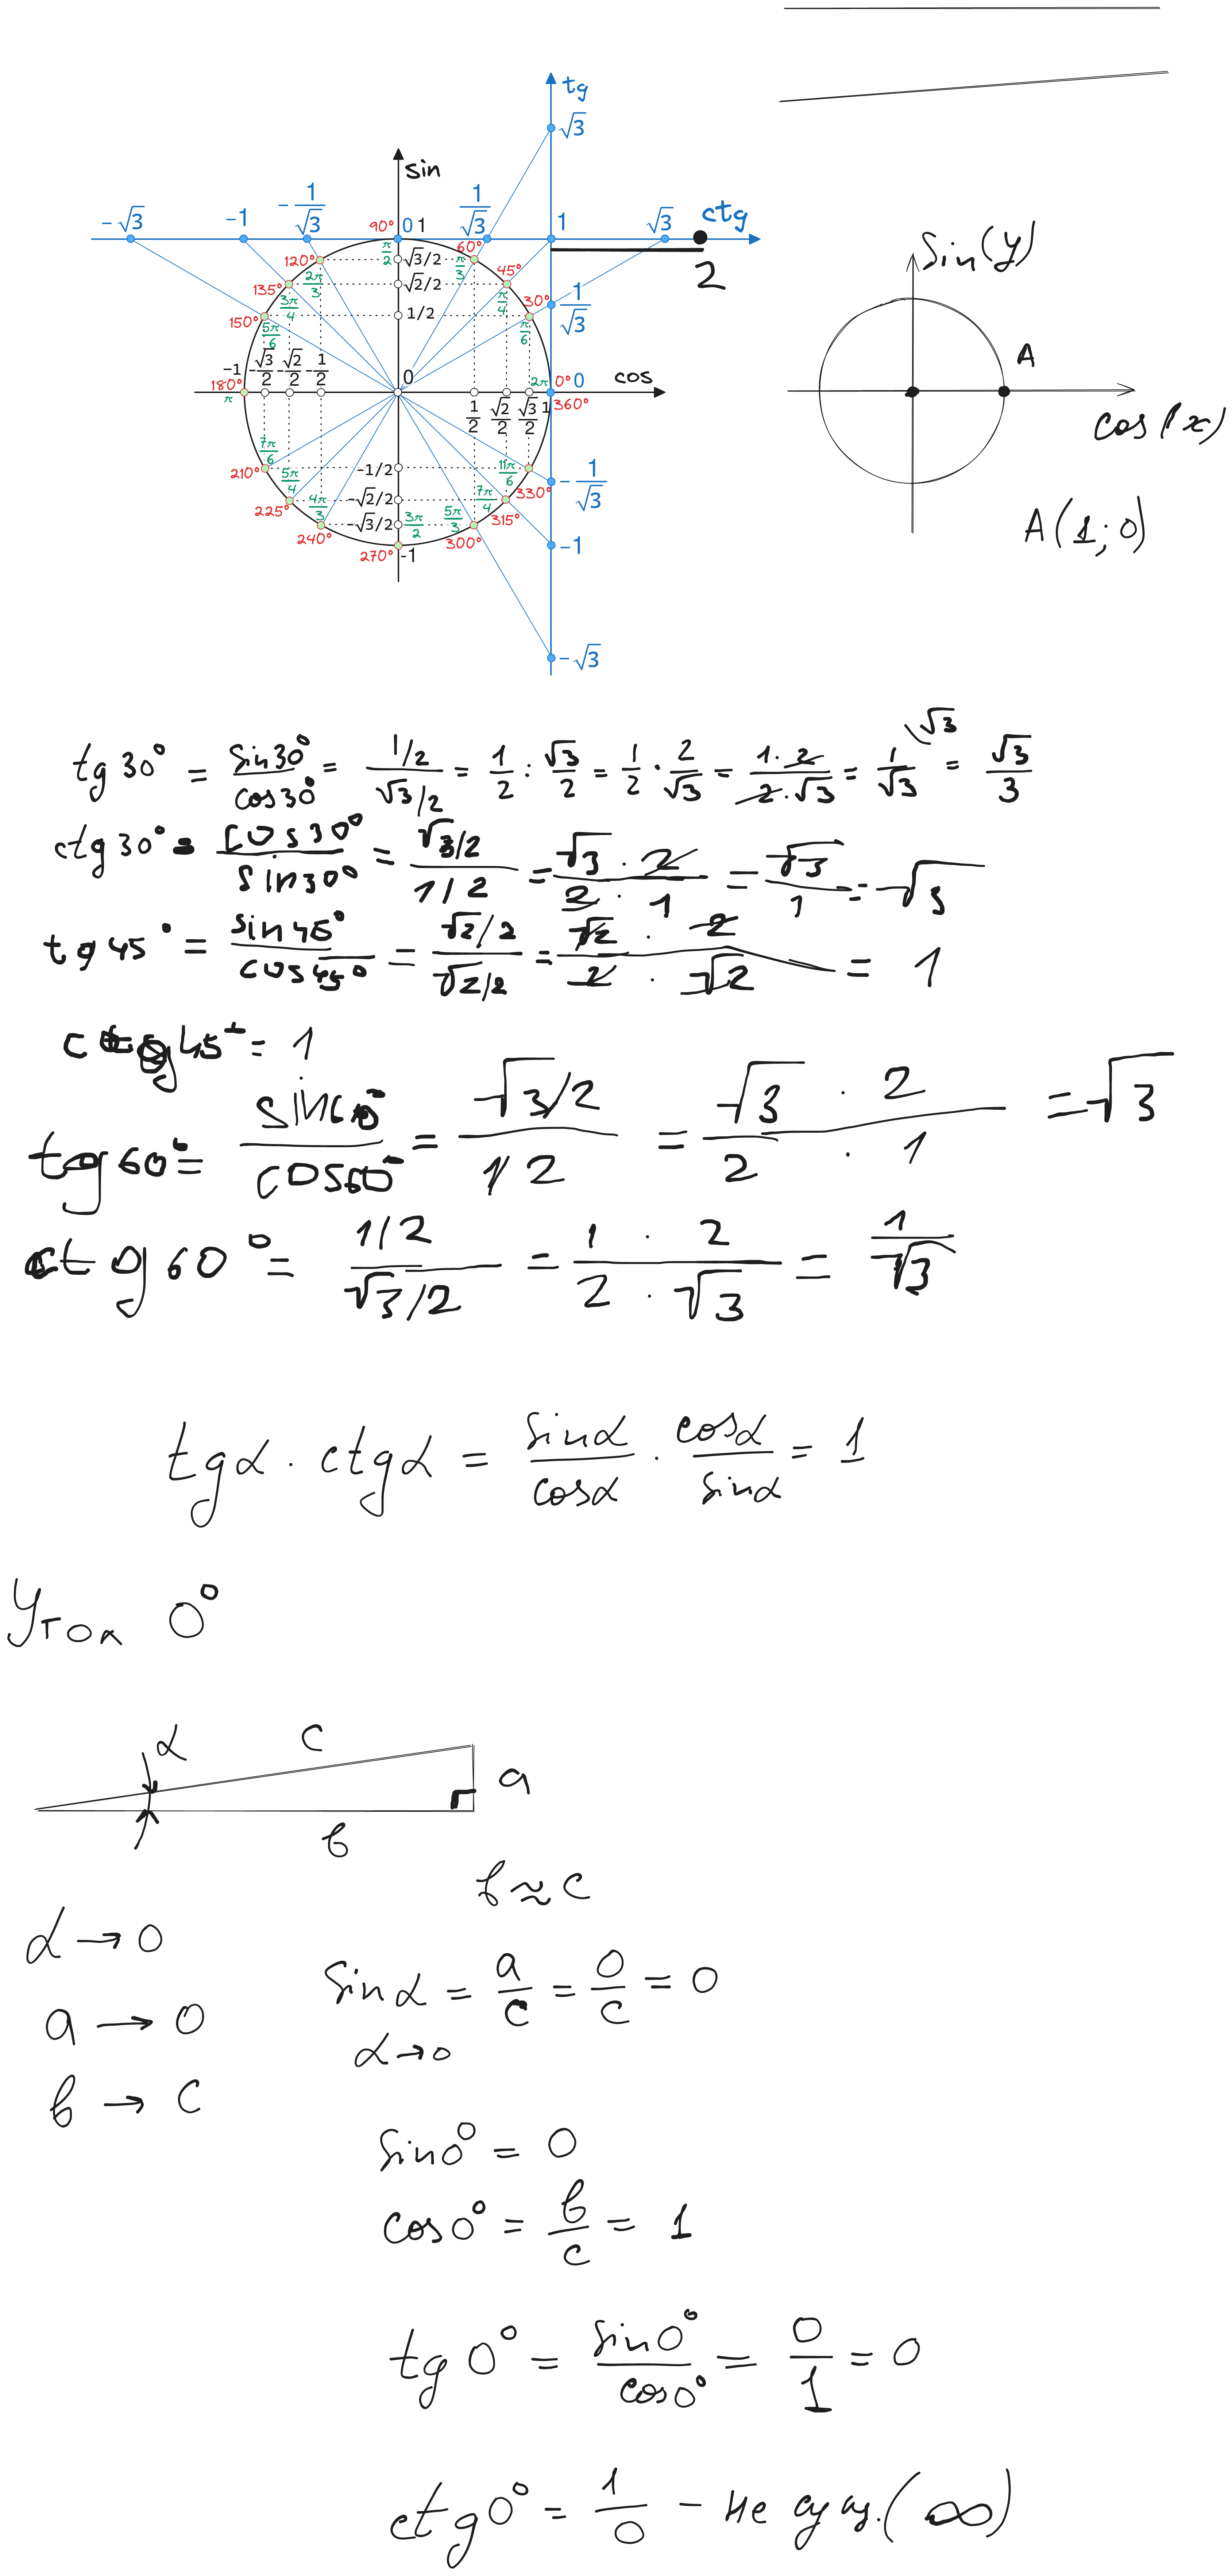 tg
√3
sin
-√3 -1 -1/√3 90° 0 1 1/√3 1 √3 ctg
120° 2π/3 π/2 √3/2 60° π/3 2
135° 3π/4 √2/2 45° π/4
150° 5π/6 1/2 30° π/6 1/√3
-1 -√3/2 -√2/2 -1/2 0 2π 0° 0 cos
180° π 1/2 √2/2 √3/2 1 360°
210° 7π/6 -1/2 11π/6 330° -1/√3
225° 5π/4 -√2/2 7π/4 315°
240° 4π/3 -√3/2 3π/2 5π/3 300°
270° -1 -1
-√3
Sin(y)
A
cos(x)
A(1;0)
tg 30° = sin30°/cos30° = (1/2)/(√3/2) = 1/2 : √3/2 = 1/2 · 2/√3 = (1·2)/(2·√3) = 1/√3 \√3 = √3/3
ctg 30° = cos30°/sin30° = (√3/2)/(1/2) = (√3·2)/(2·1) = √3/1 = √3
tg45° = sin45°/cos45° = (√2/2)/(√2/2) = (√2·2)/(2·√2) = 1
ctg45° = 1
tg60° = sin60°/cos60° = (√3/2)/(1/2) = (√3·2)/(2·1) = √3
ctg60° = (1/2)/(√3/2) = (1·2)/(2·√3) = 1/√3
tgα · ctgα = sinα/cosα · cosα/sinα = 1
0°
α c
a
b
b ≈ c
α → 0
sinα = a/c = 0/c = 0
α→0
a → 0
b → c
sin0° = 0
cos0° = b/c = 1
tg0° = sin0°/cos0° = 0/1 = 0
ctg0° = 1/0 - не сущ. (∞)